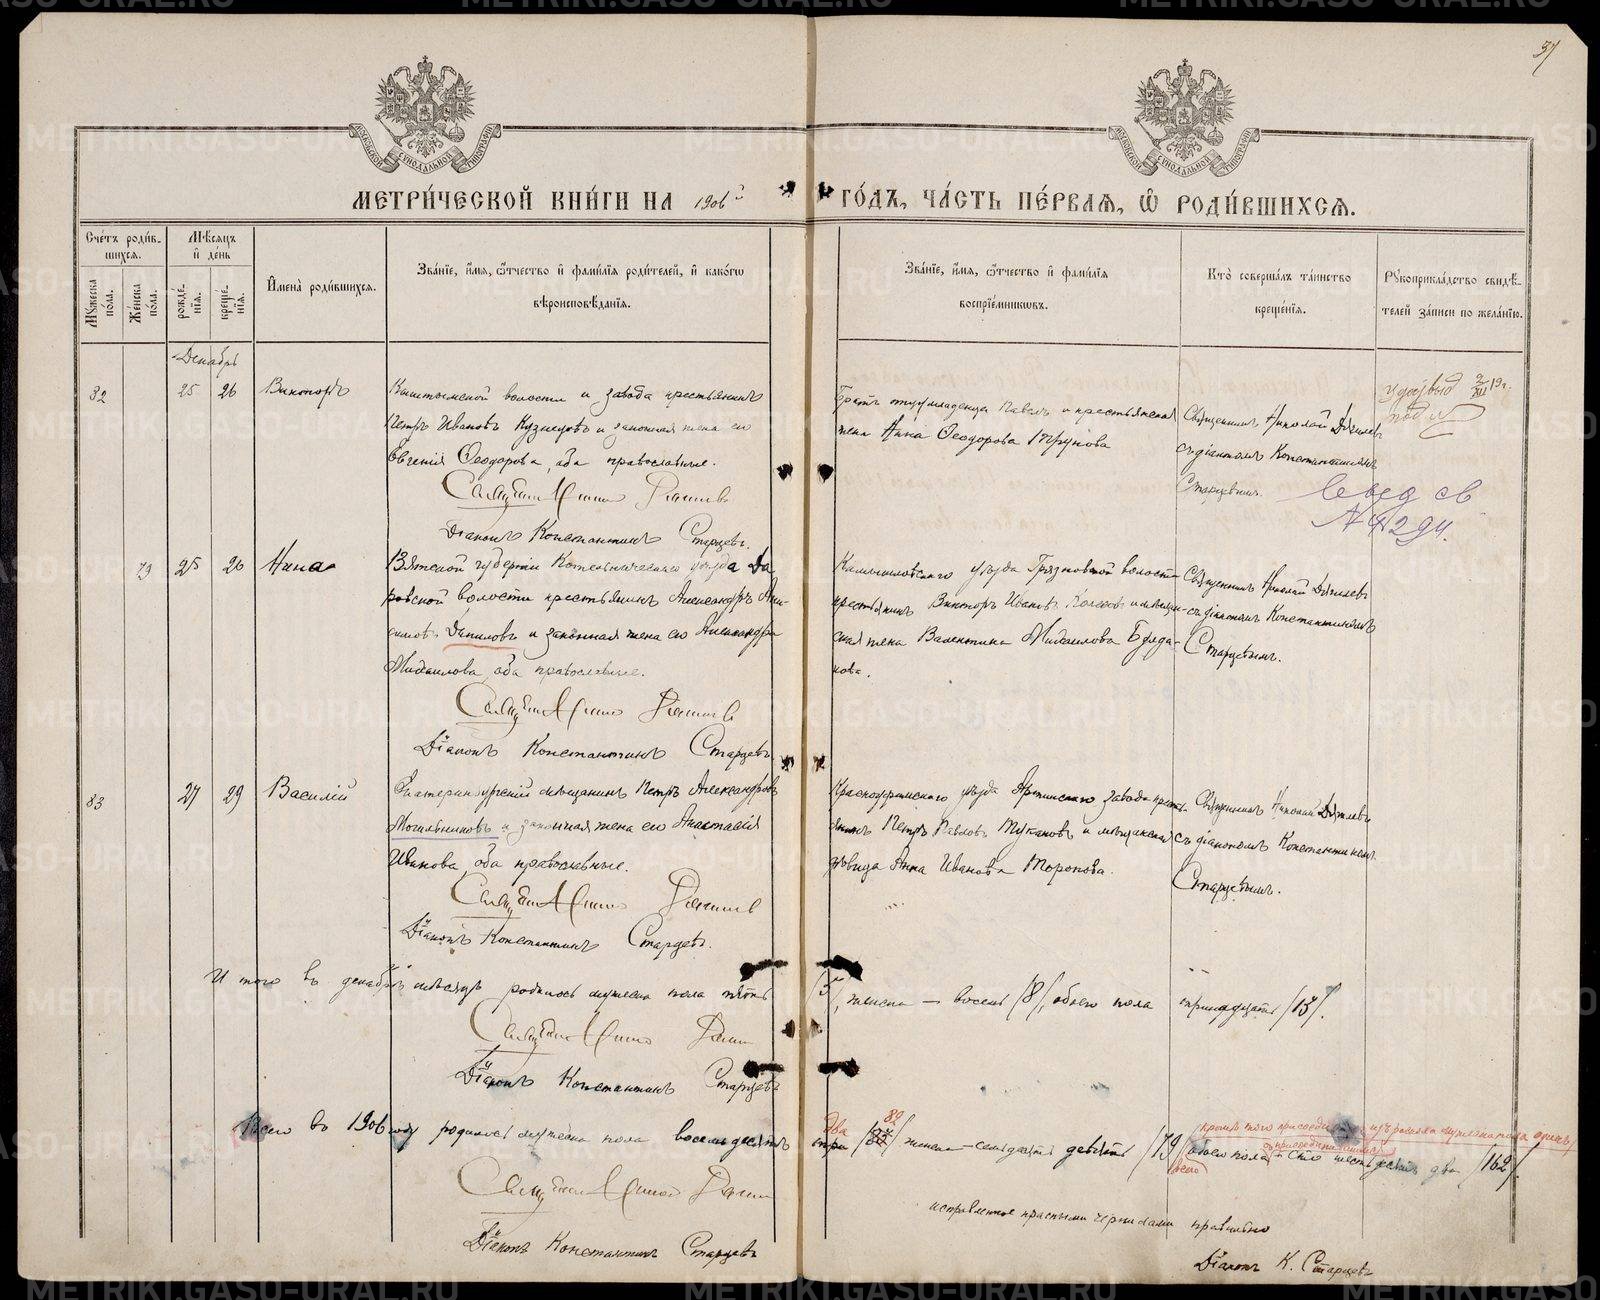 57
МЕТРИ́ЧЕСКОЙ КНИ́ГИ НА 1906й ГО́ДЪ, ЧА́СТЬ ПЕ́РВАѦ, Ѡ РОДИ́ВШИХСѦ.
Сче́тъ роди́в-
шихсѧ.
Мꙋжеска по́ла.
Же́нска по́ла.
Мѣ́сѧцъ и де́нь
рожде́нїѧ.
креще́нїѧ.
Имена̀ роди́вшихсѧ.
Зва́нїе, и́мѧ, ѻ́тчество и фами́лїѧ роди́телей, и како́гѡ
вѣроисповѣ́данїѧ.
Зва́нїе, и́мѧ, ѻ́тчество и фами́лїѧ
воспрїе́мникѡвъ.
Кто̀ соверша́лъ та́инство
креще́нїѧ.
Рꙋкоприкла́дство свидѣ́-
телей за́писи по жела́нїю.
Декабрь
82 25 26 Викторъ
Кыштымской волости и завода крестьянинъ
Петръ Ивановъ Кузнецовъ и законная жена его
Евгенія Ѳеодорова, оба православные.
Священникъ Николай
Діаконъ Константинъ Старцевъ.
Братъ отцу младенца Павелъ и крестьянская
жена Анна Ѳеодорова
Священникъ Николай
съ діакономъ Константиномъ
Старцевымъ.
№ 4294.
79 25 26 Нина
Вятской губерніи Котельническаго уѣзда Да
ровской волости крестьянинъ Александръ Ани-
симовъ Даниловъ и законная жена его Александра
Михаилова, оба православные.
Священникъ Николай
Діаконъ Константинъ Старцевъ
Камышловскаго уѣзда Грязновской волости
крестьянинъ Викторъ Ивановъ и мѣщан-
ская жена Валентина Михаилова Булда-
кова.
Священникъ Николай
съ діакономъ Константиномъ
Старцевымъ.
83 27 29 Василій
Екатеринбургскій мѣщанинъ Петръ Александровъ
Могильниковъ и законная жена его Анастасія
Иванова, оба православные.
Священникъ Николай
Діаконъ Константинъ Старцевъ.
Красноуфимскаго уѣзда Артинскаго завода кресть-
янинъ Петръ Павловъ и мѣщанская
дѣвица Анна Иванова Торопова.
Священникъ Николай
съ діакономъ Константиномъ
Старцевымъ.
Итого въ декабрѣ мѣсяцѣ родилось мужеска пола пять /5/, женска — восемь /8/, обоего пола тринадцать /13/.
Священникъ Николай
Діаконъ Константинъ Старцевъ
два 82
Всего въ 1906 году родилось мужеска пола восемьдесятъ три /83/ женска — семьдесятъ девять /79/ обоего пола — сто шестьдесятъ два /162/.
кромѣ того изъ раскола мужеска пола одинъ,
всего
Священникъ Николай
Діаконъ Константинъ Старцевъ
исправленное красными чернилами правильно
Діаконъ К. Старцевъ
METRIKI.GASO-URAL.RU